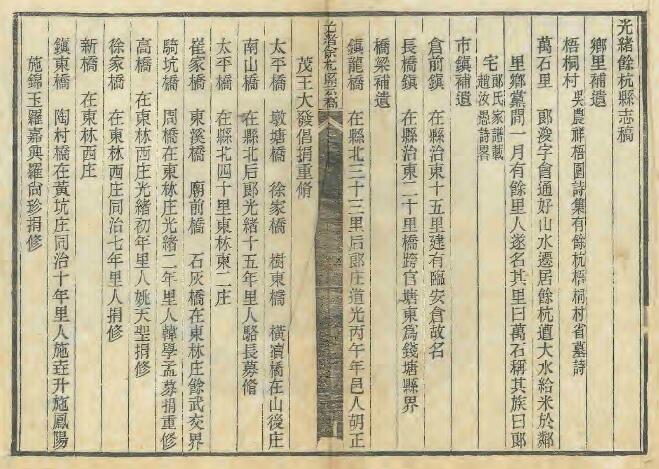 光緒餘杭縣志稿
鄉里補遺
梧桐村 吳農祥梧園詩集有餘杭梧桐村省墓詩
萬石里 郎浚字會通好山水遷居餘杭遭大水給米於鄰
里鄉黨閒一月有餘里人遂名其里曰萬石稱其族曰郎
宅 郎氏家譜載
趙汝愚詩畧
市鎮補遺
倉前鎮 在縣治東十五里建有臨安倉故名
長橋鎮 在縣治東二十里橋跨官塘東爲錢塘縣界
橋梁補遺
鎮龍橋 在縣北三十三里后郎庄道光丙午年邑人胡正
光緒餘杭縣志稿
茂王大發倡捐重脩
太平橋 墩塘橋 徐家橋 樹東橋 橫瀆橋在山後庄
南山橋 在縣北后郎光緒十五年里人駱長募脩
太平橋 在縣北四十里東栋東二庄
崔家橋 東溪橋 廟前橋 石灰橋在東林庄餘武交界
騎坑橋 周橋在東林庄光緒二年里人韓學孟募捐重修
高橋 在東林西庄光緒初年里人姚天聖捐修
徐家橋 在東林西庄同治七年里人捐修
新橋 在東林西庄
鎮東橋 陶村橋在黃坑庄同治十年里人施垚升施鳳陽
施錦玉羅嘉興羅尙珍捐修